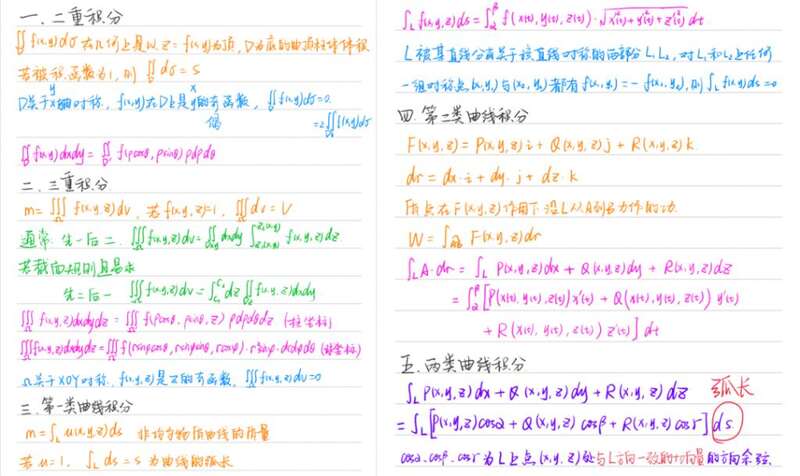 一.二重积分
∬_D f(x,y)dσ 在几何上是以 z=f(x,y)为顶,D为底的曲顶柱体体积
若被积函数为1,则 ∬_D dσ = S
D关于x轴对称,f(x,y)在D上是y的奇函数,∬_D f(x,y)dσ=0.
y x
偶 =2∬f(x,y)dσ
∬_D f(x,y)dxdy = ∬_D f(ρcosθ,ρsinθ)ρdρdθ
二.三重积分
m=∭_Ω f(x,y,z)dv,若f(x,y,z)=1,∭_Ω dv=V
通常.先一后二.∭_Ω f(x,y,z)dv=∬dxdy∫ f(x,y,z)dz
若截面规则且易求
先二后一 ∭_Ω f(x,y,z)dv=∫dz∬f(x,y,z)dxdy
∭_Ω f(x,y,z)dxdydz = ∭_Ω f(ρcosθ,ρsinθ,z)ρdρdθdz (柱坐标)
∭_Ω f(x,y,z)dxdydz=∭_Ω f(rsinφcosθ,rsinφsinθ,rcosφ)·r²sinφ·drdφdθ (球坐标)
Ω关于XOY对称,f(x,y,z)是z的奇函数,∭_Ω f(x,y,z)dv=0
三.第一类曲线积分
m=∫_L u(x,y,z)ds 非均匀物质曲线的质量
若u=1,∫_L ds=s 为曲线的弧长
∫_L f(x,y,z)ds=∫_α^β f(x(t),y(t),z(t))·√(x'²(t)+y'²(t)+z'²(t)) dt
L被某直线分为关于该直线对称的两部分L₁L₂,对L₁和L₂上任何
一组对称点(x₁,y₁)与(x₂,y₂)都有f(x₁,y₁)=-f(x₂,y₂),则∫_L f(x,y)ds=0
四.第二类曲线积分
F(x,y,z)=P(x,y,z)i+Q(x,y,z)j+R(x,y,z)k
dr=dx·i+dy·j+dz·k
质点在F(x,y,z)作用下沿L从A到B力作的功.
W=∫_AB F(x,y,z)dr
∫_L A·dr=∫_L P(x,y,z)dx+Q(x,y,z)dy+R(x,y,z)dz
=∫_α^β [P(x(t),y(t),z(t))x'(t)+Q(x(t),y(t),z(t))y'(t)
+R(x(t),y(t),z(t))z'(t)]dt
五.两类曲线积分
∫_L P(x,y,z)dx+Q(x,y,z)dy+R(x,y,z)dz 弧长
=∫_L [P(x,y,z)cosα+Q(x,y,z)cosβ+R(x,y,z)cosγ]ds.
cosα.cosβ.cosγ为L上点(x,y,z)处与L方向一致的切向量的方向余弦.